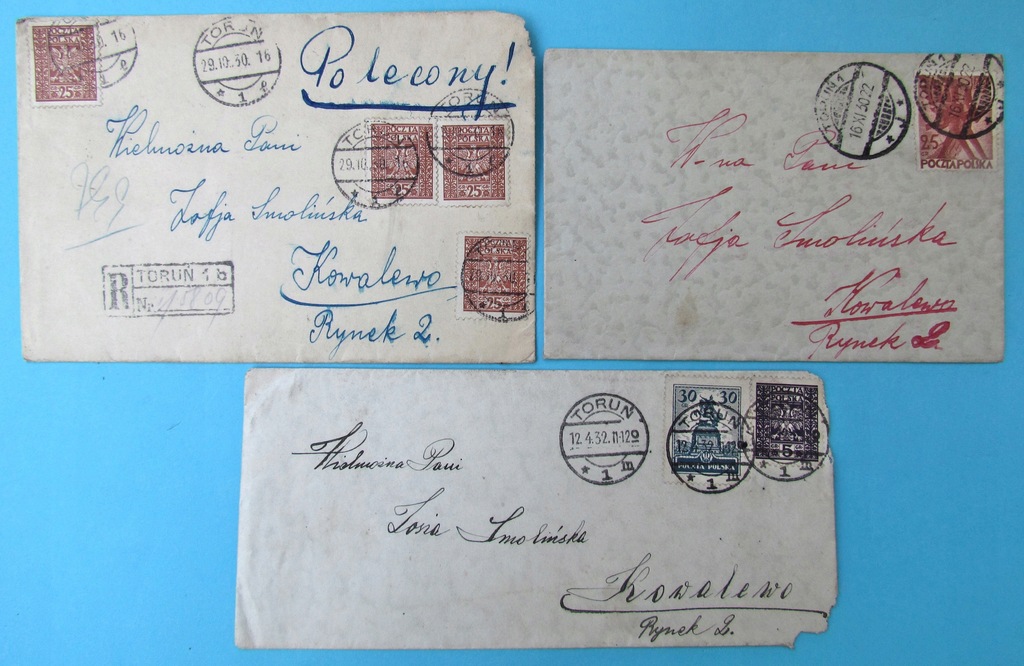 TORUŃ
29.10.30. 16
* 1 e
Polecony!
25
Wielmożna Pani
Zofja Smolińska
Kowalewo
Rynek 2.
R
TORUŃ 1 b
Nr.
POCZTA
POLSKA
25
25
25
TORUŃ 1
16 XI 40 22
25
POCZTA POLSKA
W-na Pani
Zofja Smolińska
Kowalewo
Rynek 2.
TORUŃ
12.4.32.11-12º
* 1 m
30 30
TORUŃ
POCZTA POLSKA
* 1 m
POCZTA
POLSKA
5
Wielmożna Pani
Zosia Smolińska
Kowalewo
Rynek 2.